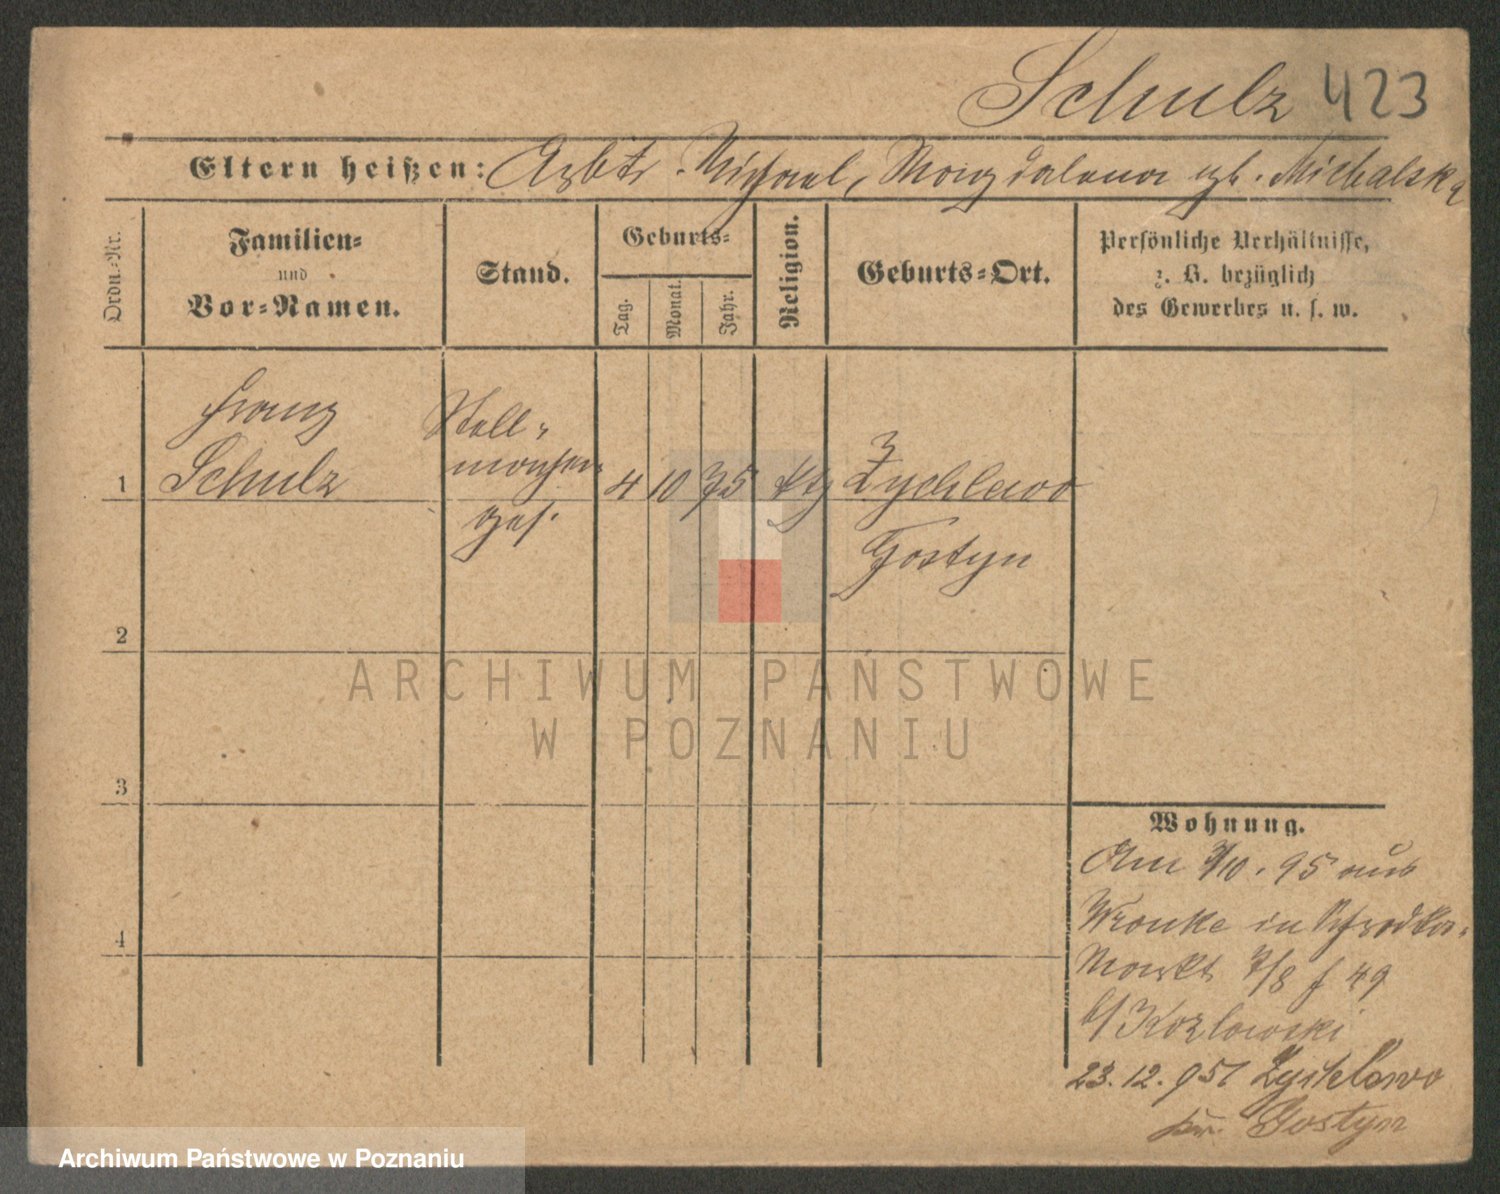 Schulz 423
Eltern heißen: Arbtr. Michael, Magdalena geb. Michalska
Ordn.-Nr.
Familien-
und
Vor-Namen.
Stand.
Geburts-
Tag.
Monat.
Jahr.
Religion.
Geburts-Ort.
Persönliche Verhältnisse,
z. B. bezüglich
des Gewerbes u. s. w.
Franz
Schulz
Stell-
macher
ges.
1
4 10 75 kth
Zychlewo
Gostyn
2
3
4
Wohnung.
Am /10. 95 aus
Wronke in Schrodka-
Markt 7/8 f 49
b/ Kozlowski
23.12.95 Zychlewo
Kr. Gostyn
ARCHIWUM PAŃSTWOWE
W POZNANIU
Archiwum Państwowe w Poznaniu